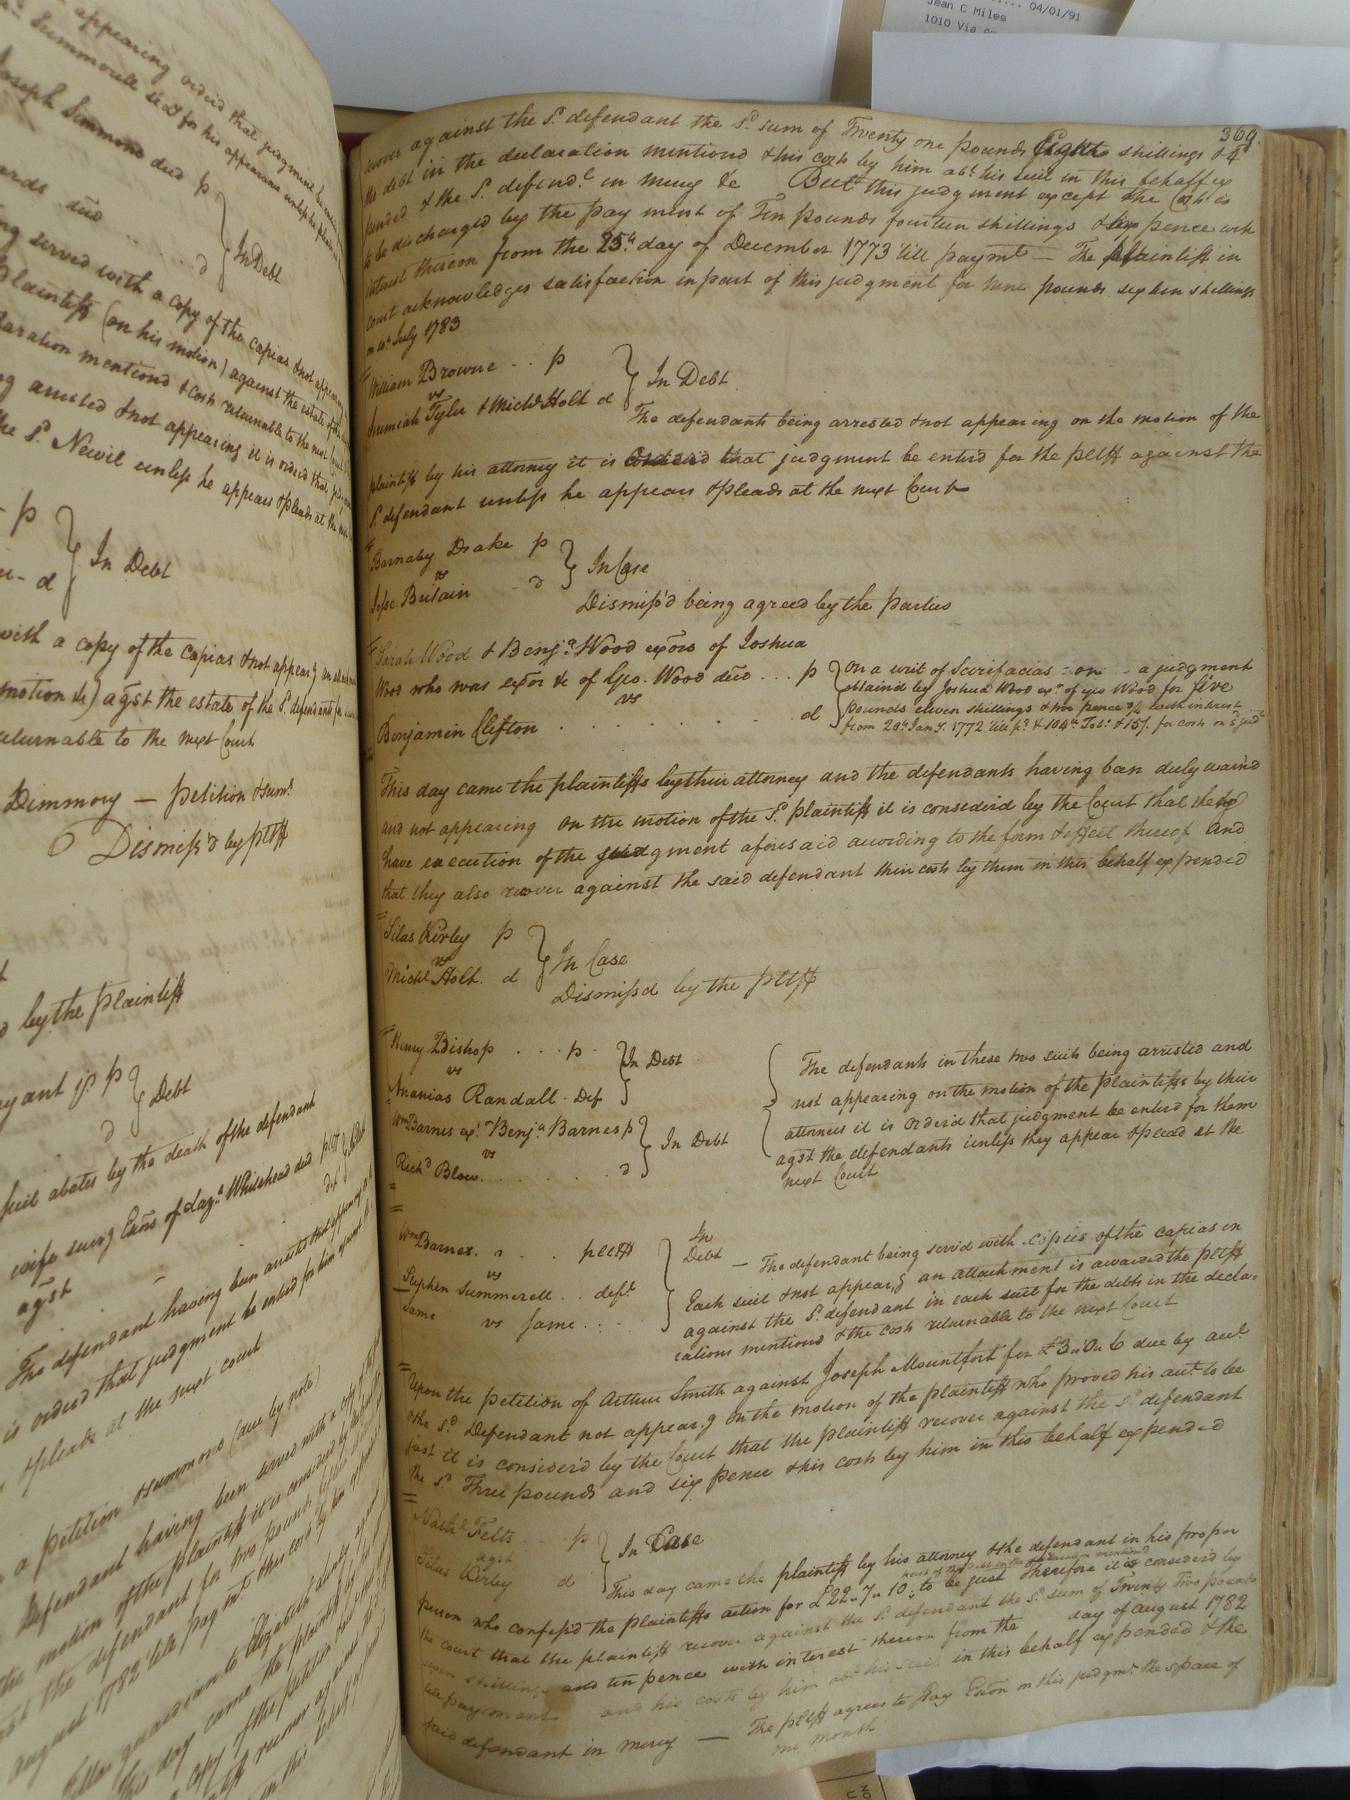 04/01/91
Jean C Miles
1010 Via
appearing ordered that judgment be
Summerell &c for his appearance unless he
Joseph Simmons decd p
In Debt
served with a copy of the capias & not appearing
Plaintiff (on his motion) against the estate of the
mentiond & Costs returnable to the next
arrested & not appearing it is ordered that
the sd. Newil unless he appears & pleads at the
p
d
In Debt
with a copy of the capias & not appearg an
motion &c) agst the estate of the sd. defendant for
returnable to the next Court
Dimmory — petition & sums
Dismiss'd by pltff
by the plaintiff
p
Debt
suit abates by the death of the defendant
wife suing Exors of Lazs. Whitehead decd pltf
agst
The defendant having been arrested & not appearg
is orderd that judgment be enterd for him against
& pleads at the next court
a petition & summons (due by note)
Defendant having been served with a copy of
the motion of the plaintiff it is considerd by
the defendant for two pounds
august 1782 till paymt. & his costs by him
guardian to Elizabeth
this day came the plaintiff by
copy of the petition
369.
recover against the sd. defendant the sd. sum of Twenty one pounds Eight shillings & 4d
the debt in the declaration mentiond & his costs by him abt. his suit in this behalf ex
pended & the sd. defendt. in mercy &c But this judgment except the Costs is
to be discharged by the payment of Ten pounds fourteen shillings & two pence with
interest thereon from the 25th. day of December 1773 till paymt — The plaintiff in
court acknowledges satisfaction in part of this judgment for nine pounds six shillings
on 10th July 1783
William Browne . . . p
vs
Jeremiah Tyler & Michl. Holt d
In Debt
The defendants being arrested & not appearing on the motion of the
plaintiff by his attorney it is Ordered that judgment be enterd for the pltff against the
sd. defendant unless he appears & pleads at the next Court
Barnaby Drake p
vs
Jesse Britain d
In Case
Dismiss'd being agreed by the parties
Sarah Wood & Benja. Wood exors of Joshua
Wood who was exor &c of Geo. Wood decd . . . p
vs
Benjamin Clifton . . . . d
On a writ of Scirifacias on a judgment
obtaind by Joshua Wood exr. of Geo Wood for five
pounds eleven shillings & two pence with interest
from 20th. Jany. 1772 till pd. & 104lb Tobo. & 15/. for costs on sd. judt
This day came the plaintiffs by their attorney and the defendants having been duly warnd
and not appearing on the motion of the sd. plaintiff it is considerd by the Court that they
have execution of the judgment aforesaid according to the form & effect thereof and
that they also recover against the said defendant their costs by them in this behalf expended
Silas Kirley p
vs
Michl. Holt. d
In Case
Dismissd by the pltff
Henry Bishop . . . p
vs
Ananias Randall . Def
In Debt
Wm Barnes exr. Benja. Barnes p
vs
Richd Blow . . . . . d
In Debt
The defendants in these two suits being arrested and
not appearing on the motion of the plaintiffs by their
attornies it is orderd that judgment be enterd for them
agst the defendants unless they appear & plead at the
next Court
Wm Barnes . . . pltff
vs
Stephen Summerell . . deft.
Same vs Same . . .
In
Debt — The defendant being serv'd with copies of the capias in
Each suit & not appearg an attachment is awarded the pltff
against the sd. defendant in each suit for the debts in the decla-
rations mentiond & the costs returnable to the next Court
Upon the petition of Arthur Smith against Joseph Mountfort for £3.. 0.. 6 due by acct.
& the sd. Defendant not appearg on the motion of the plaintiff who proved his acct. to be
just it is consider'd by the Court that the plaintiff recover against the sd. defendant
the sd. Three pounds and six pence & his costs by him in this behalf expended
Nathl. Felts . . . p
agst
Silas Kirley d
In Case
This day came the plaintiff by his attorney & the defendant in his proper
person who confess'd the plaintiffs action for £22.. 7.. 10. to be just Therefore it is considerd by
the court that the plaintiff recover against the sd. defendant the sd. sum of Twenty Two pounds
seven shillings and ten pence with interest thereon from the day of august 1782
till payment and his costs by him abt. his suit in this behalf expended & the
said defendant in mercy — The pltff agrees to stay Exon on this judgmt. the space of
one month